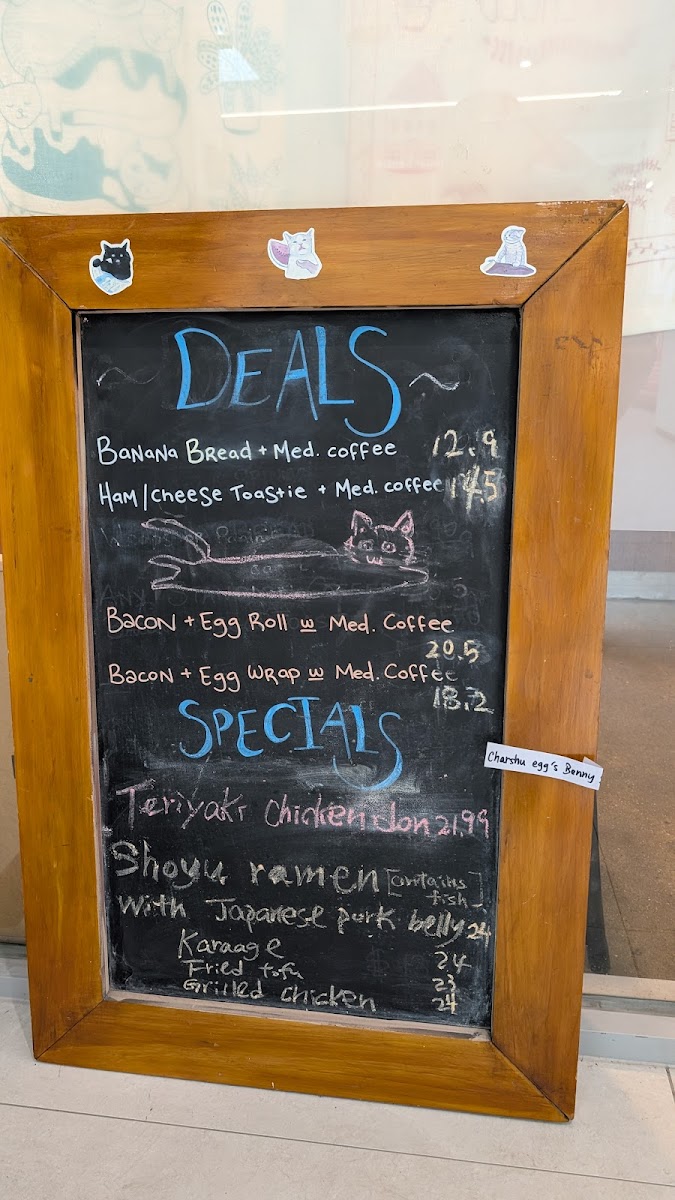 ~ DEALS ~
Banana Bread + Med. coffee 12.9
Ham/cheese Toastie + Med. coffee 14.5
Bacon + Egg Roll w Med. Coffee
20.5
Bacon + Egg Wrap w Med. Coffee
18.2
SPECIALS
Charshu egg's Benny
Teriyaki chicken don 21.99
Shoyu ramen [contains
fish]
with Japanese pork belly 24
Karaage 24
Fried tofu 23
Grilled chicken 24